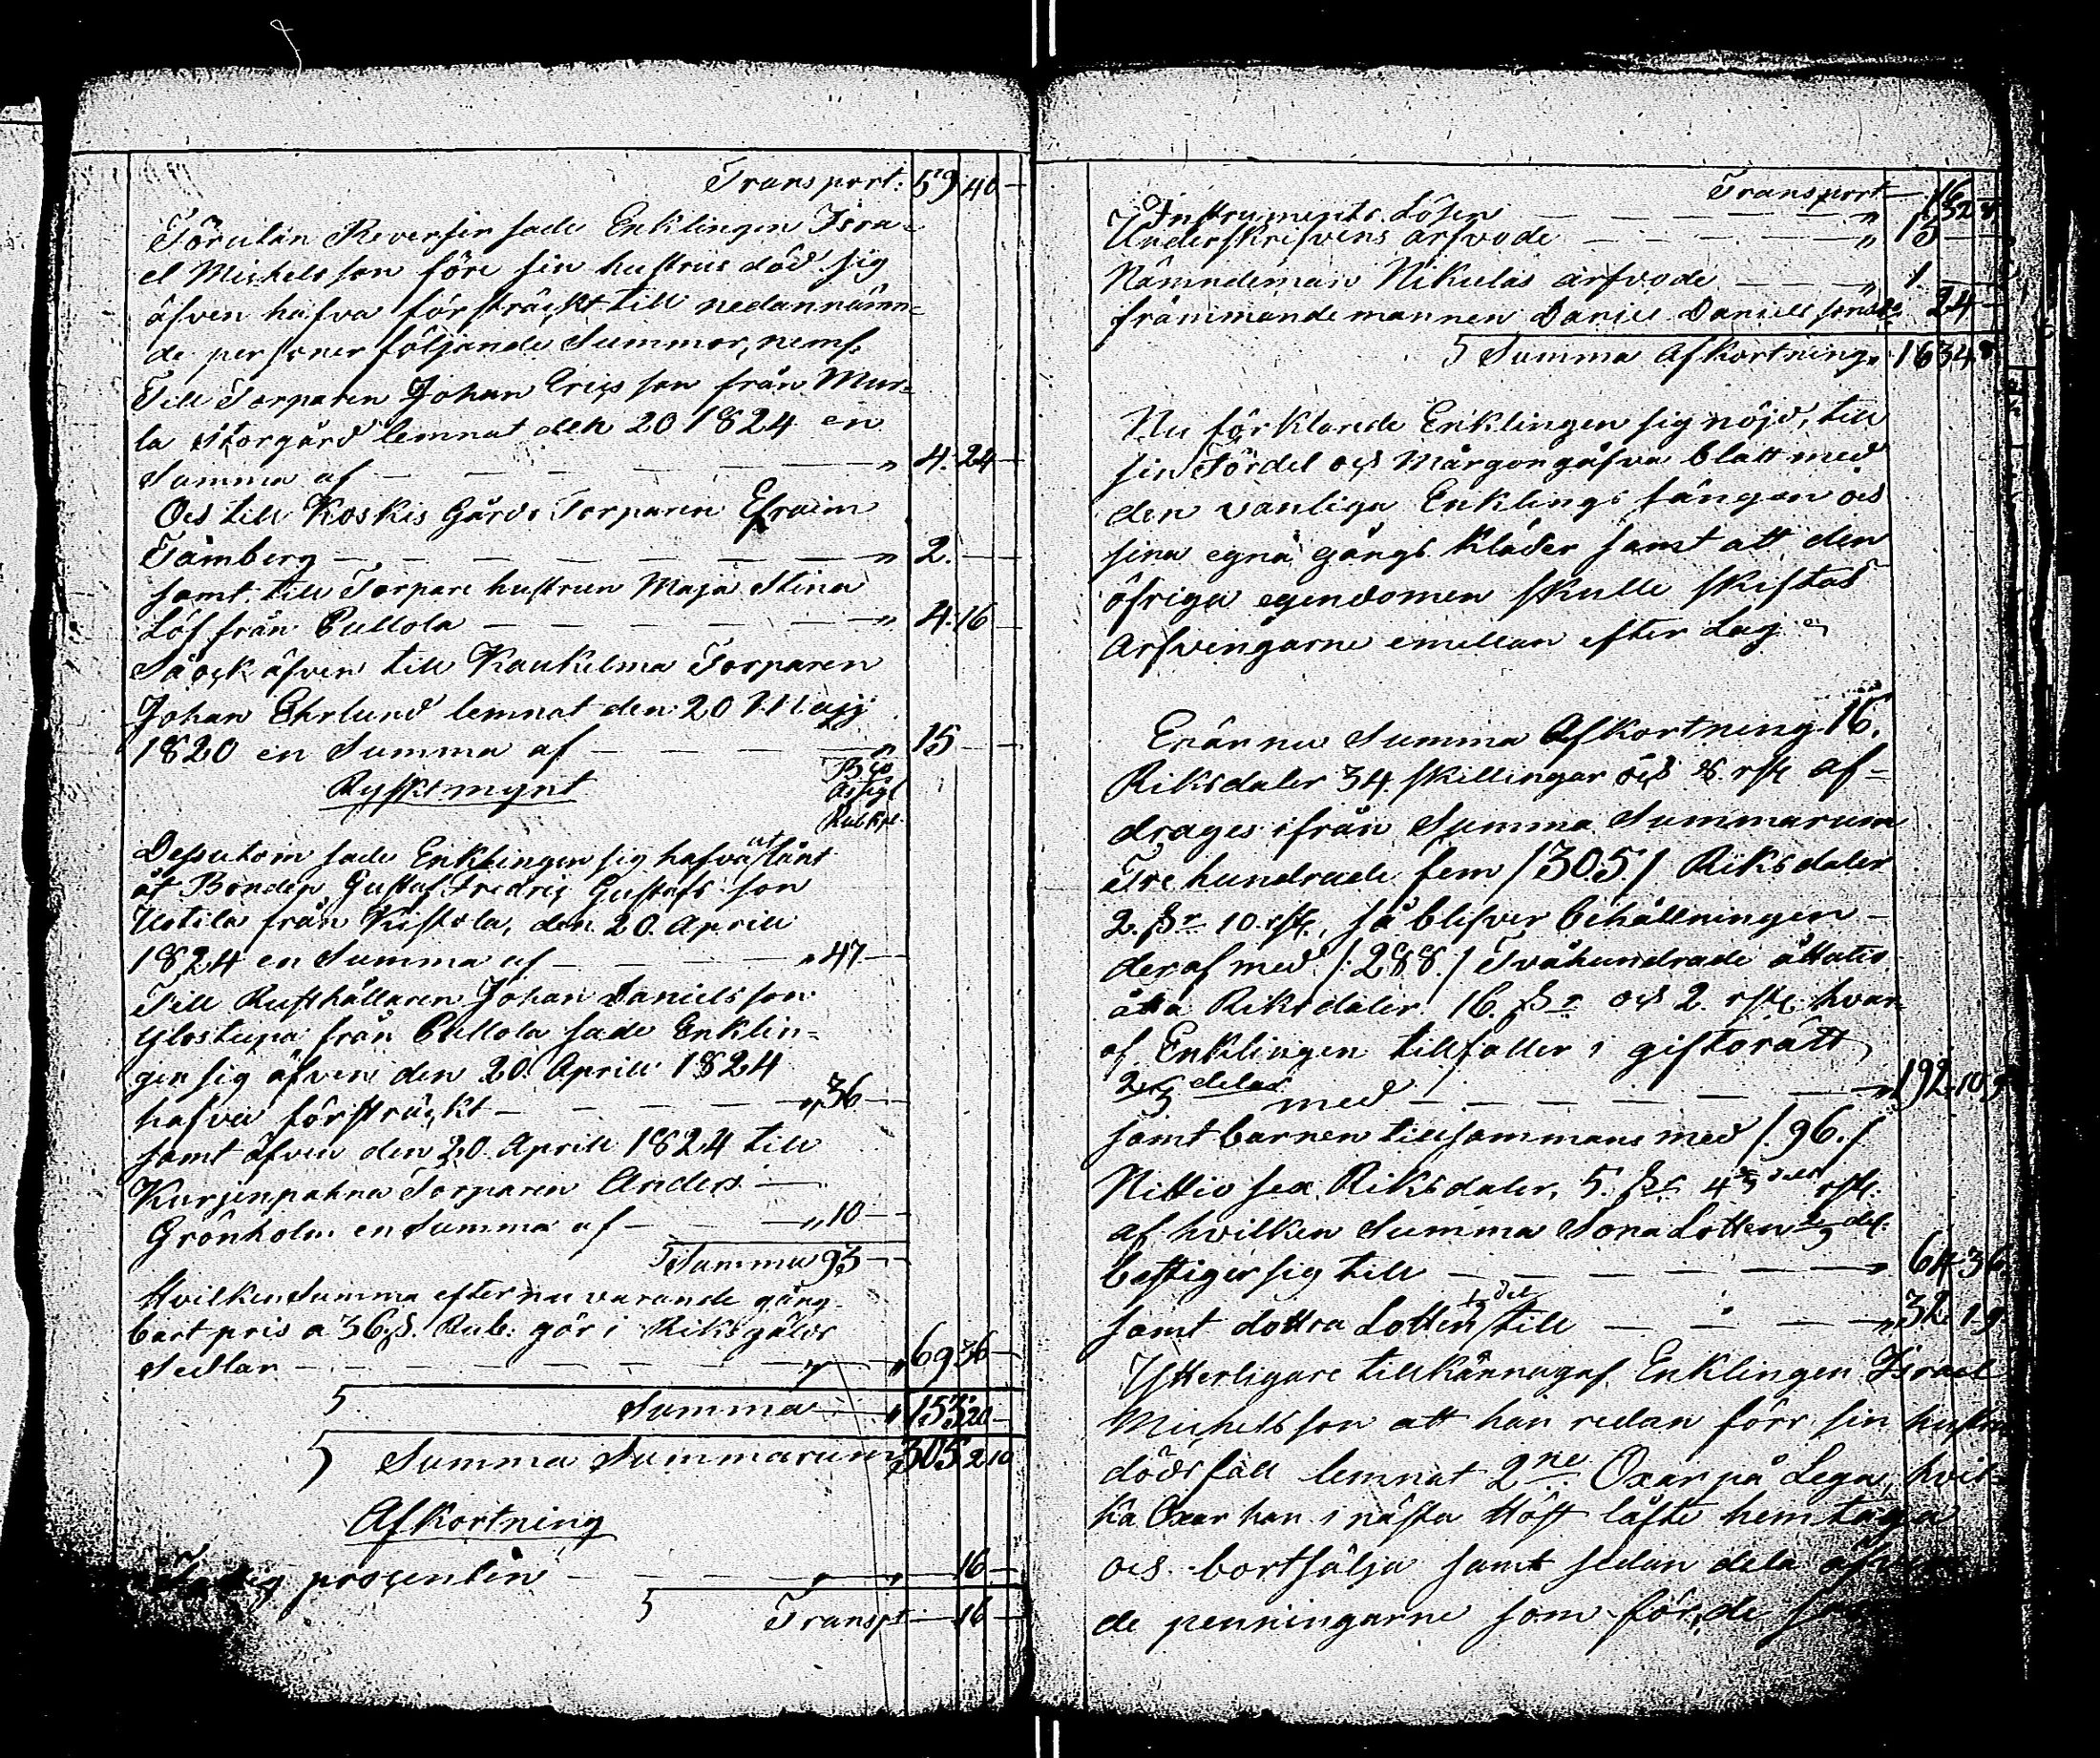 Transport: 59 40 —
Förutan Reverser sade Enklingen Isra-
el Michelsson före sin hustrus död sig
äfven hafva försträckt till nedannämn-
de personer följande Summor, neml.
Till Torparen Johan Ericsson från Mur-
la Storgård lemnat den 20 1824 en
Summa af — — — — — " 4. 24 —
Och till Koskis Gårds Torparen Efraim
Tämberg — — — — — " 2. — —
samt till Torpare hustrun Maja Stina
Löf från Pullola — — — — — " 4. 16 —
Så ock äfven till Kaukelma Torparen
Johan Ehrlund lemnat den 20 Maji
1820 en Summa af — — — — " 15 — —
Ryskt mynt Bco Assig. Rub. Kpk.
Dessutom sade Enklingen sig hafva utlånt
åt Bonden Gustaf Fredric Gustafsson
Uotila från Kistola, den 20. Aprill
1824 en Summa af — — — — " 47 —
Till Rusthållaren Johan Danielsson
Ylostupa från Pullola sade Enklin-
gen sig äfven den 20. Aprill 1824
hafva försträckt — — — — " 36 —
samt äfven den 20. Aprill 1824 till
Kurjenpahna Torparen Anders —
Grönholm en Summa af — — — " 10 —
Summa 93 —
Hvilken Summa efter nu varande gång-
bart pris a 36 s. Rub: gör i Riksgälds
Sedlar — — — — — — " 69 36 —
Summa — " 153 20 —
Summa Summarum " 305 2 10
Afkortning
Fattig procenten — — — — — 16 —
Transpt — 16 —
Transport — 16
Instruments Lösen — — — — " 1 32 8
Underskrifvens arfvode — — — — " 13 — —
Nämndeman Nikulas arfvode — — — " 1 — —
främmande mannen Daniel Danielsson 24 —
Summa Afkortning " 16 34 8
Nu förklarade Enklingen sig nöjd, till
sin Fördel och Morgongåfva blott med
den vanliga Enklings sängen och
sina egna gångs kläder samt att den
öfriga egendomen skulle skiftas
Arfvingarne emellan efter Lag
Enär nu Summa Afkortning 16.
Riksdaler 34 skillingar och 8 rst. af-
drages ifrån Summa Summarum
Tre hundrade fem /305./ Riksdaler
2. sr 10. rst., så blifver behållningen —
deraf med /:288./ Tvåhundrade åttatio
åtta Riksdaler 16. sr och 2 rst. hvar-
af Enklingen tillfaller i giftorätt
2/3 delar med — — — — — " 192. 10 9
samt barnen tillsammans med /.96./
Nittio sex Riksdaler, 5. sr 4 2/3 dels rst.
af hvilken Summa Sona Lotten 2/3 del.
bestiger sig till — — — — — " 64. 3 6
samt dottra Lotten 1/3 del till — — — — " 32. 1 9
Ytterligare tillkännagaf Enklingen Israel
Michelsson att han redan förr sin hustru
dödsfall lemnat 2ne Oxar på Lega, hvil-
ka Oxar han i nästa Höst låfte hemtaga
och bortsälja samt sedan dela
de penningarne som för de